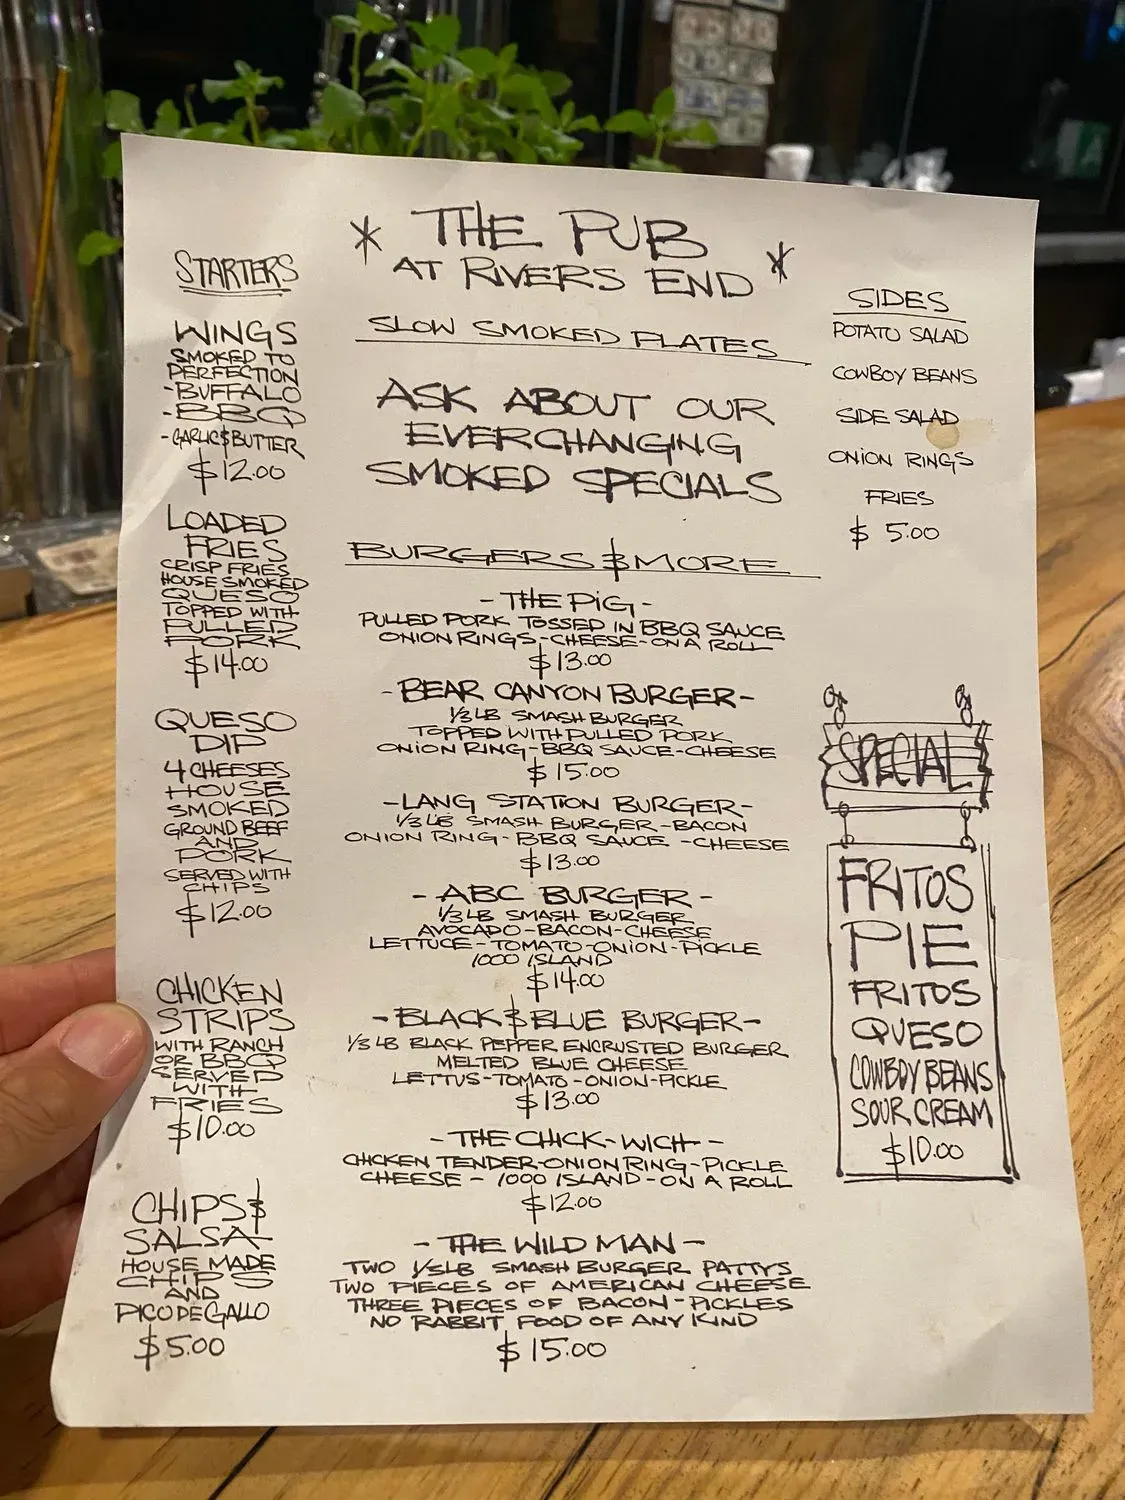 * THE PUB *
AT RIVERS END
STARTERS
WINGS
SMOKED TO
PERFECTION
-BUFFALO
-BBQ
-GARLIC & BUTTER
$12.00
LOADED
FRIES
CRISP FRIES
HOUSE SMOKED
QUESO
TOPPED WITH
PULLED
PORK
$14.00
QUESO
DIP
4 CHEESES
HOUSE
SMOKED
GROUND BEEF
AND
PORK
SERVED WITH
CHIPS
$12.00
CHICKEN
STRIPS
WITH RANCH
OR BBQ
SERVED
WITH
FRIES
$10.00
CHIPS &
SALSA
HOUSE MADE
CHIPS
AND
PICO DE GALLO
$5.00
SLOW SMOKED PLATES
ASK ABOUT OUR
EVERCHANGING
SMOKED SPECIALS
BURGERS & MORE
-THE PIG-
PULLED PORK TOSSED IN BBQ SAUCE
ONION RINGS-CHEESE-ON A ROLL
$13.00
-BEAR CANYON BURGER-
1/3 LB SMASH BURGER
TOPPED WITH PULLED PORK
ONION RING-BBQ SAUCE-CHEESE
$15.00
-LANG STATION BURGER-
1/3 LB SMASH BURGER-BACON
ONION RING-BBQ SAUCE-CHEESE
$13.00
-ABC BURGER-
1/3 LB SMASH BURGER
AVOCADO-BACON-CHEESE
LETTUCE-TOMATO-ONION-PICKLE
1000 ISLAND
$14.00
-BLACK & BLUE BURGER-
1/3 LB BLACK PEPPER ENCRUSTED BURGER
MELTED BLUE CHEESE
LETTUS-TOMATO-ONION-PICKLE
$13.00
-THE CHICK-WICH-
CHICKEN TENDER-ONION RING-PICKLE
CHEESE-1000 ISLAND-ON A ROLL
$12.00
-THE WILD MAN-
TWO 1/3 LB SMASH BURGER PATTYS
TWO PIECES OF AMERICAN CHEESE
THREE PIECES OF BACON-PICKLES
NO RABBIT FOOD OF ANY KIND
$15.00
SIDES
POTATO SALAD
COWBOY BEANS
SIDE SALAD
ONION RINGS
FRIES
$5.00
SPECIAL
FRITOS
PIE
FRITOS
QUESO
COWBOY BEANS
SOUR CREAM
$10.00